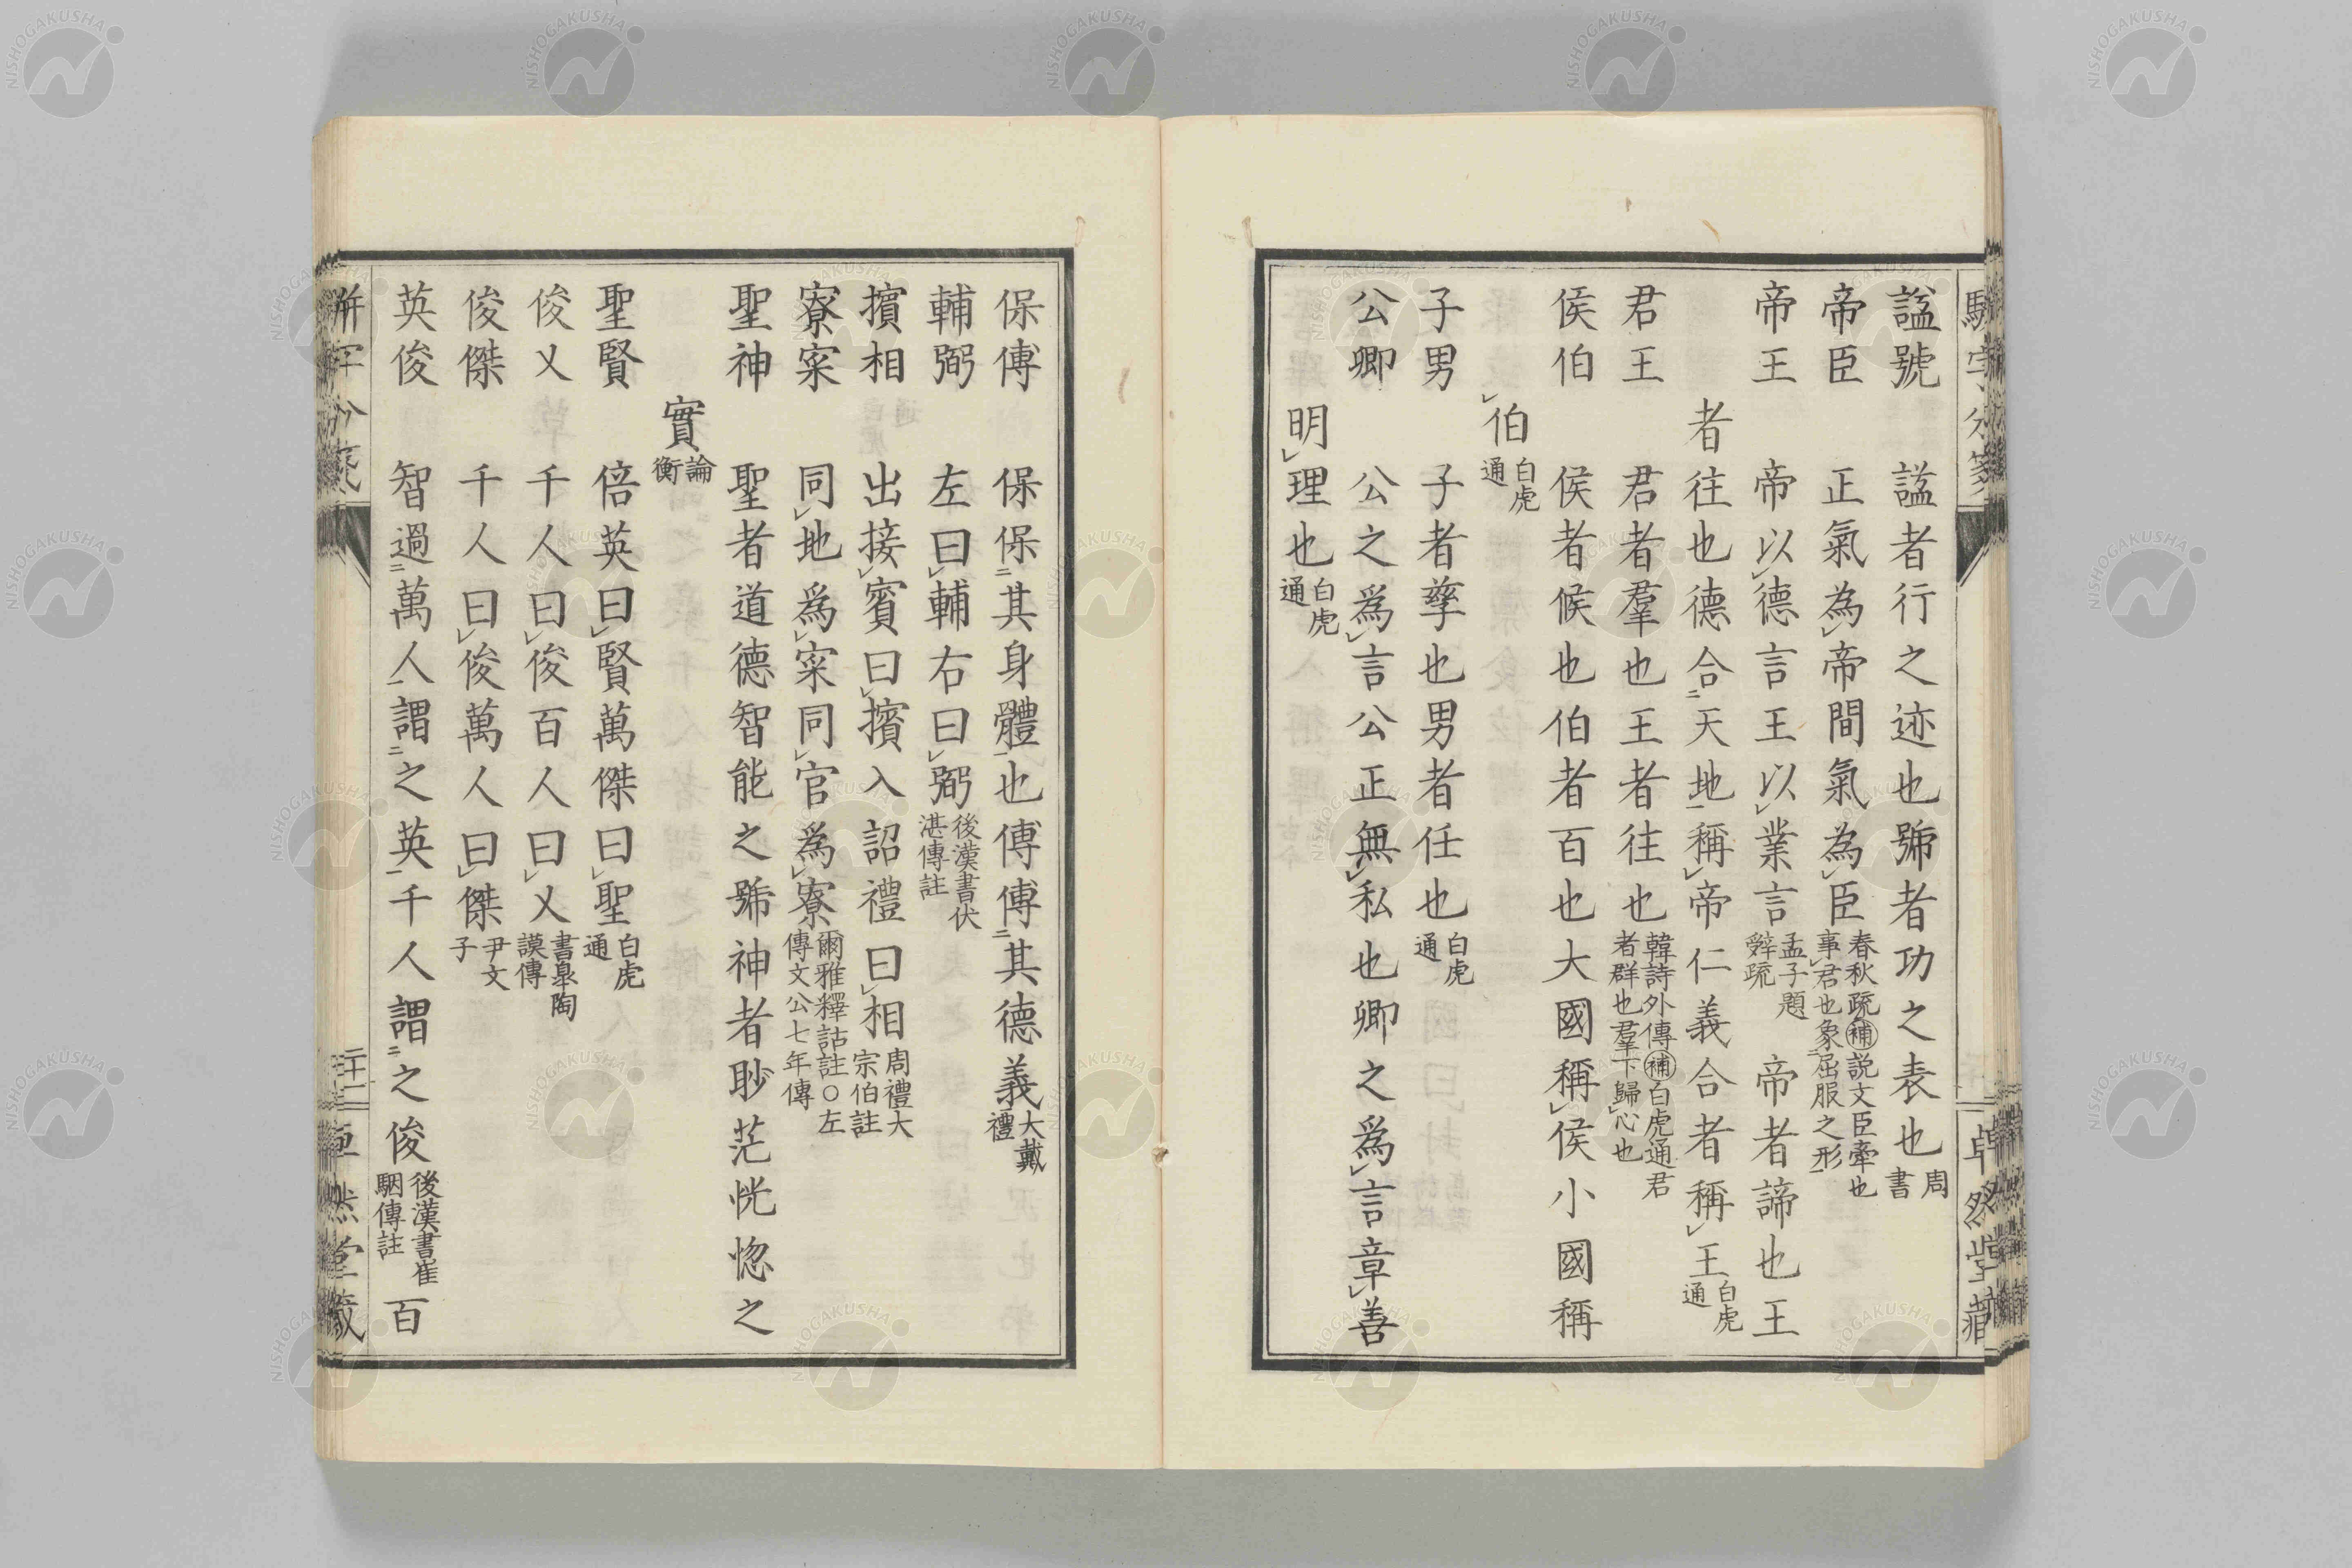 諡號 諡者行之迹也號者功之表也周書
帝臣 正氣為帝間氣為臣春秋疏補説文臣牽也事君也象屈服之形
帝王 帝以德言王以業言孟子題辭疏 帝者諦也王
者往也德合天地稱帝仁義合者稱王白虎通
君王 君者羣也王者往也韓詩外傳補白虎通君者群也羣下歸心也
侯伯 侯者候也伯者百也大國稱侯小國稱
伯白虎通
子男 子者孳也男者任也白虎通
公卿 公之為言公正無私也卿之為言章善
明理也白虎通
保傅 保保其身體也傅傅其德義大戴禮
輔弼 左曰輔右曰弼後漢書伏湛傳註
擯相 出接賓曰擯入詔禮曰相周禮大宗伯註
寮寀 同地為寀同官為寮爾雅釋詁註○左傳文公七年傳
聖神 聖者道德智能之號神者眇茫恍惚之
實論衡
聖賢 倍英曰賢萬傑曰聖白虎通
俊乂 千人曰俊百人曰乂書皐陶謨傳
俊傑 千人曰俊萬人曰傑尹文子
英俊 智過萬人謂之英千人謂之俊後漢書崔駰傳註 百
二十二
NISHOGAKUSHA